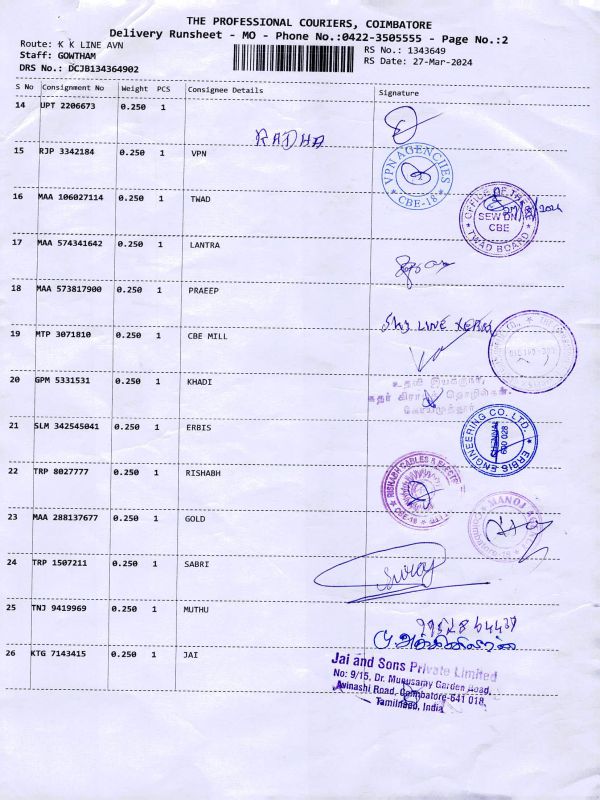 THE PROFESSIONAL COURIERS, COIMBATORE
Delivery Runsheet - MO - Phone No.:0422-3505555 - Page No.:2
Route: K K LINE AVN
Staff: GOWTHAM
DRS No.: DCJB134364902
RS No.: 1343649
RS Date: 27-Mar-2024
S No Consignment No Weight PCS Consignee Details Signature
14 UPT 2206673 0.250 1
RADHA
15 RJP 3342184 0.250 1 VPN
VPN AGENCIIES
CBE-18
16 MAA 106027114 0.250 1 TWAD
OFFICE OF THE
SEW DN
CBE
TWAD BOARD
17 MAA 574341642 0.250 1 LANTRA
18 MAA 573817900 0.250 1 PRAEEP
SKY LINE
19 MTP 3071810 0.250 1 CBE MILL
20 GPM 5331531 0.250 1 KHADI
உதவி இயக்குநர்,
கதர் கிராமத் தொழில்கள்,
கோயமுத்தூர்
21 SLM 342545041 0.250 1 ERBIS
ERBIS ENGINEERING CO. LTD.
CHENNAI
600 028
22 TRP 8027777 0.250 1 RISHABH
RISHABH CABLES & ELECTRI
CBE-18
23 MAA 288137677 0.250 1 GOLD
MANOJ
24 TRP 1507211 0.250 1 SABRI
25 TNJ 9419969 0.250 1 MUTHU
26 KTG 7143415 0.250 1 JAI
Jai and Sons Private Limited
No: 9/15, Dr. Munusamy Garden Road,
Avinashi Road, Coimbatore-641 018,
Tamilnadu, India